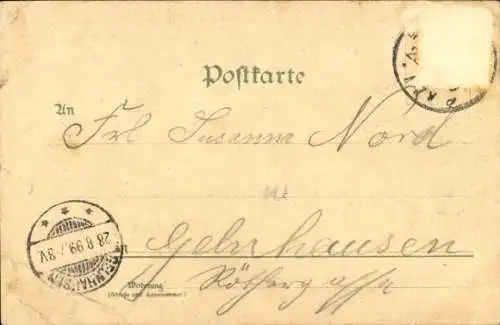 Postkarte
An
Frl Susanna Nord
in
Gelnhausen
Röthergasse
Wohnung
(Straße und Hausnummer)
28.8.99. 7-8V.
GELNHAUSEN